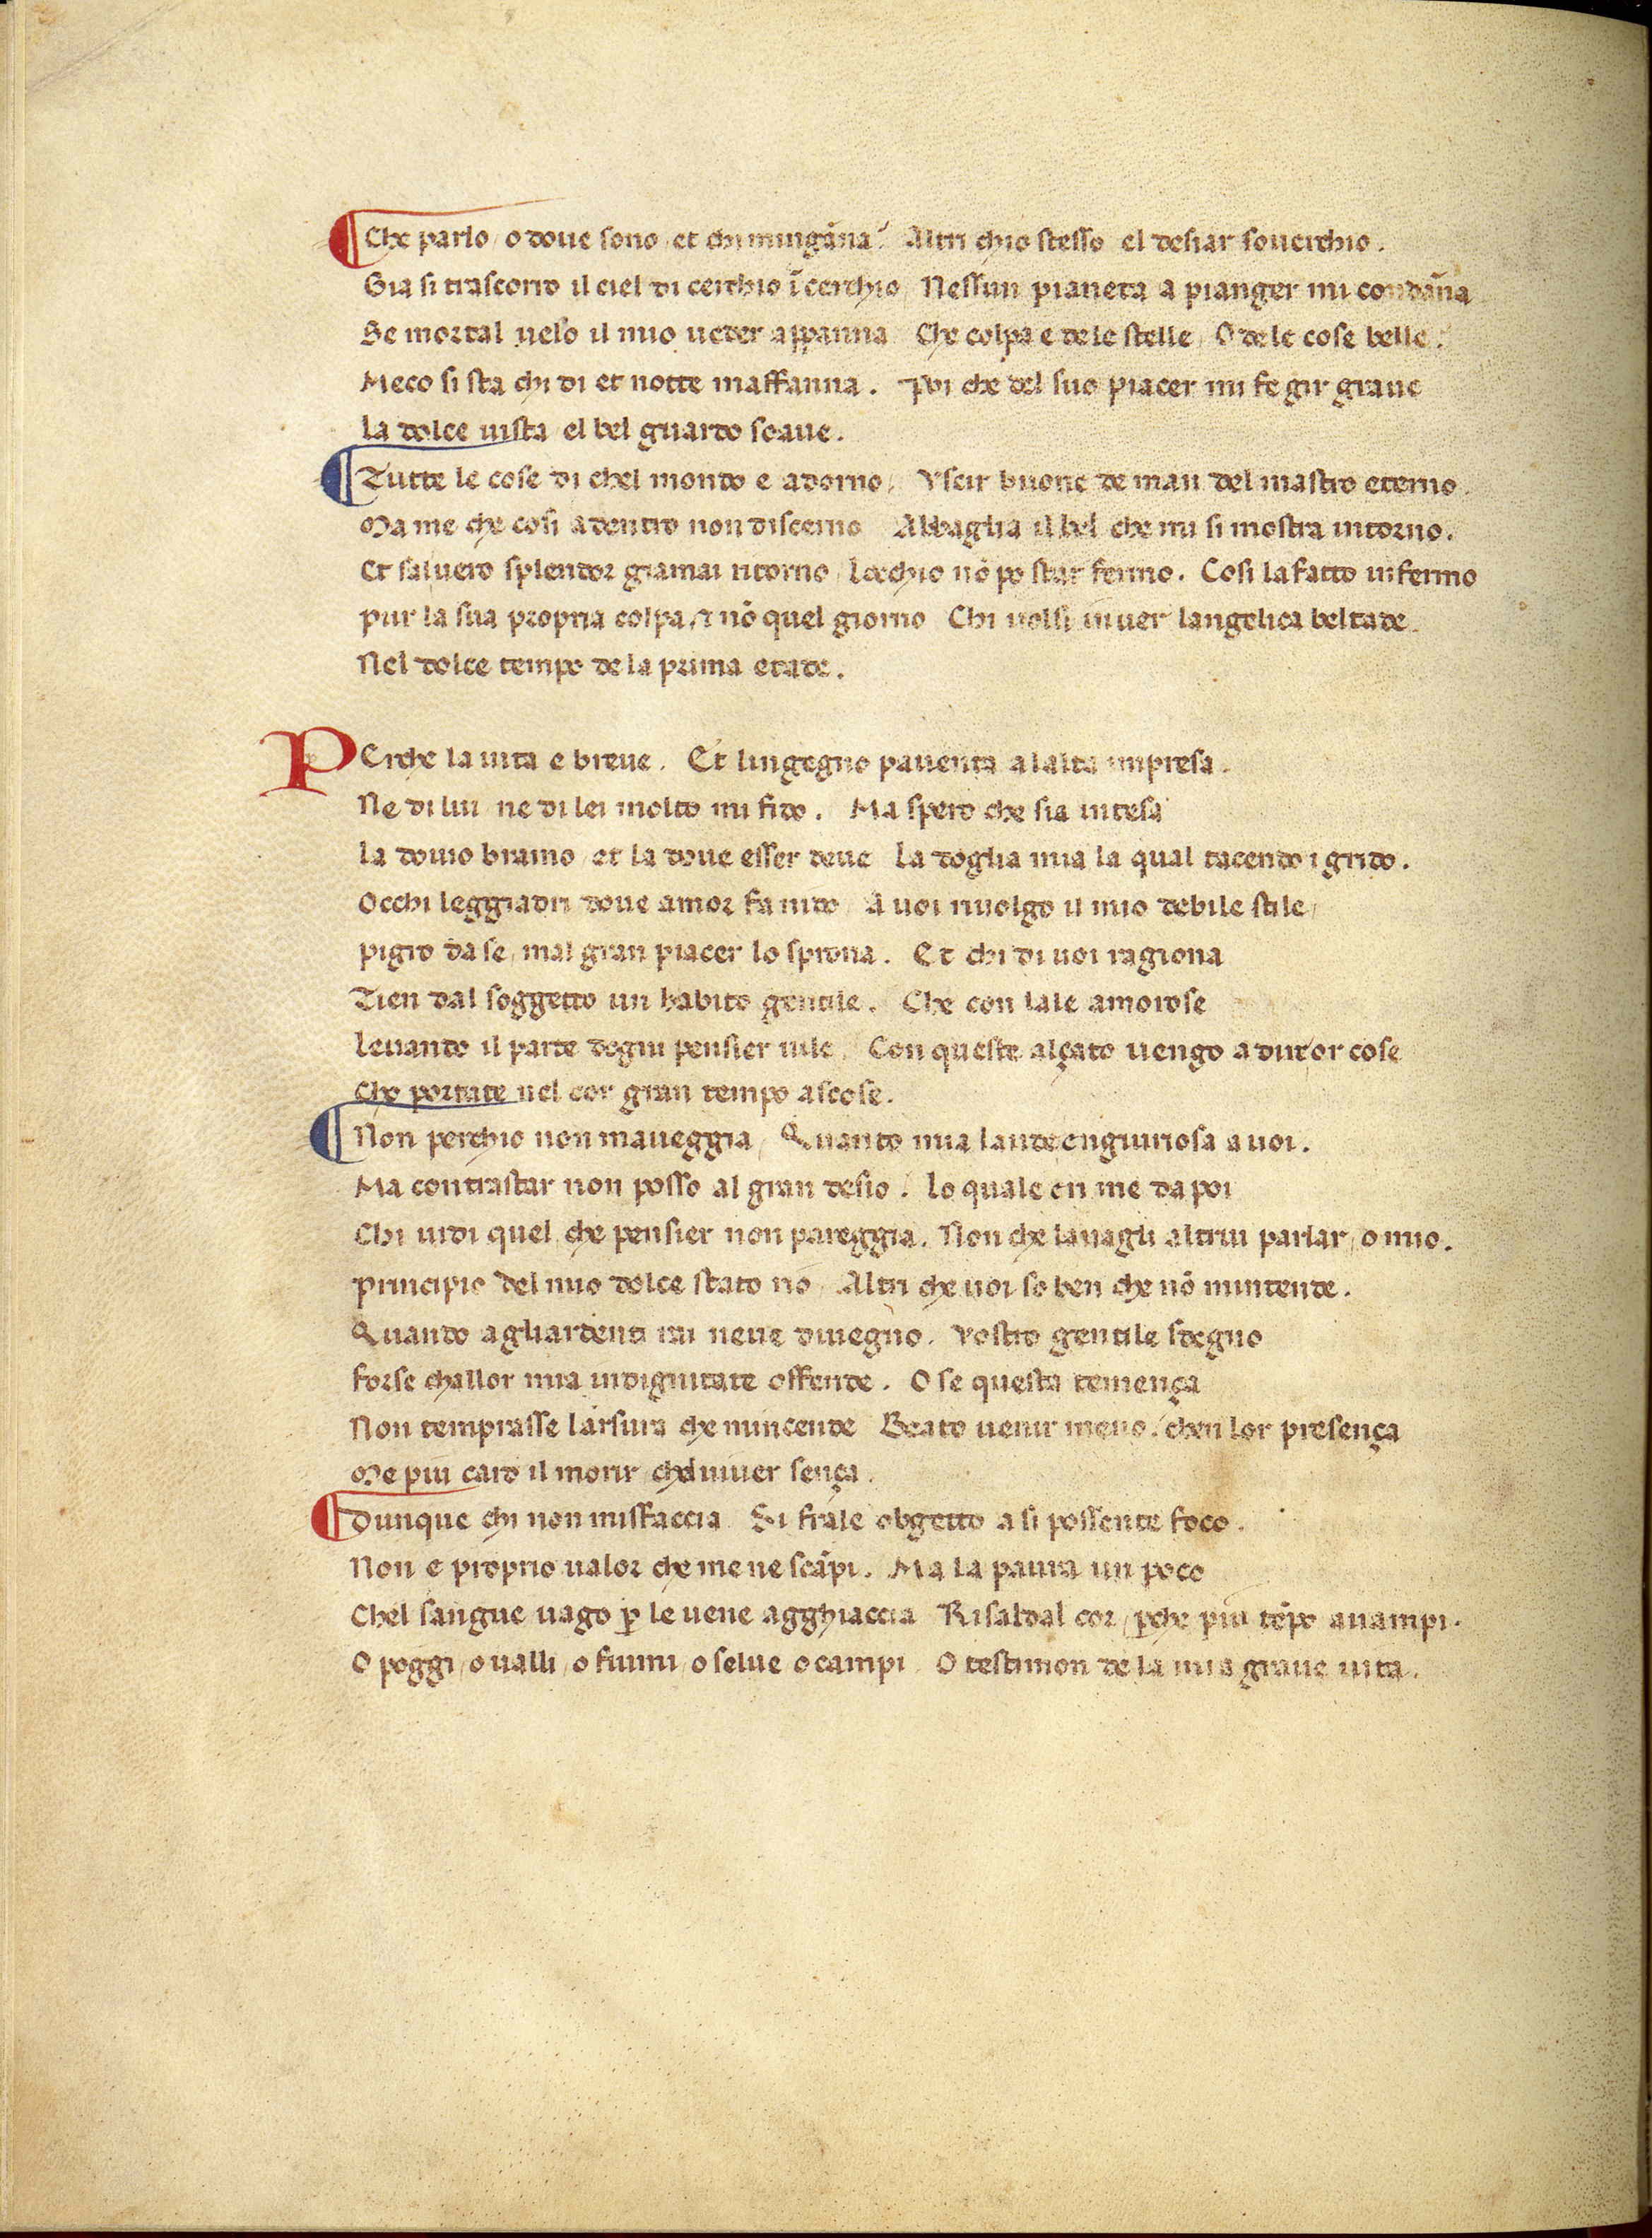 Che parlo / o doue sono / et chi minganna? Altri chio stesso el desiar souerchio.
Gia si trascorro il ciel di cerchio ī cerchio / Nessun pianeta a pianger mi condāna
Se mortal uelo il mio ueder appanna Che colpa e de le stelle / O de le cose belle.
Meco si sta chi di et notte maffanna. Poi che del suo piacer mi fe gir graue
La dolce uista el bel guardo soaue.
Tutte le cose di chel mondo e adorno / Vscir buone de man del mastro eterno.
Ma me che cosi adentro non discerno Abbaglia il bel che mi si mostra intorno.
Et saluero splendor giamai ritorno / Locchio nō po star fermo. Cosi la fatto infermo
pur la sua propria colpa / ⁊ nō quel giorno Chi uolsi inuer langelica beltade.
Nel dolce tempo de la prima etade.
PErche la uita e breue. Et lingegno pauenta a lalta impresa.
Ne di lui ne di lei molto mi fido. Ma spero che sia intesa
La douio bramo / et la doue esser deue La doglia mia la qual tacendo i grido.
Occhi leggiadri doue amor fa nido / A uoi riuolgo il mio debile stile /
pigro da se / mal gran piacer lo sprona. Et chi di uoi ragiona
Tien dal soggetto un habito gentile. Che con lale amorose
Leuando il parte dogni pensier uile. Con queste alçato uengo a dir or cose
Cho portate nel cor gran tempo ascose.
Non perchio non maueggia / Quanto mia laude engiuriosa a uoi.
Ma contrastar non posso al gran desio. Lo quale en me da poi
Chi uidi quel che pensier non pareggia. Non che lauagli altrui parlar / o mio.
Principio del mio dolce stato rio / Altri che uoi so ben che nō mintende.
Quando agliardenti rai neue diuegno. Vostro gentile sdegno
Forse challor mia indignitate offende. O se questa temença
Non temprasse larsura che mincende Beato uenir meno / chen lor presença
Me piu caro il morir / chel uiuer sença.
Dunque chi non misfaccia Si frale obgetto a si possente foco.
Non e proprio ualor che me ne scāpi. Ma la paura un poco
Chel sangue uago ꝑ le uene agghiaccia Risaldal cor / ꝑche piu tēpo auampi.
O poggi / o ualli / o fiumi / o selue o campi O testimon de la mia graue uita.